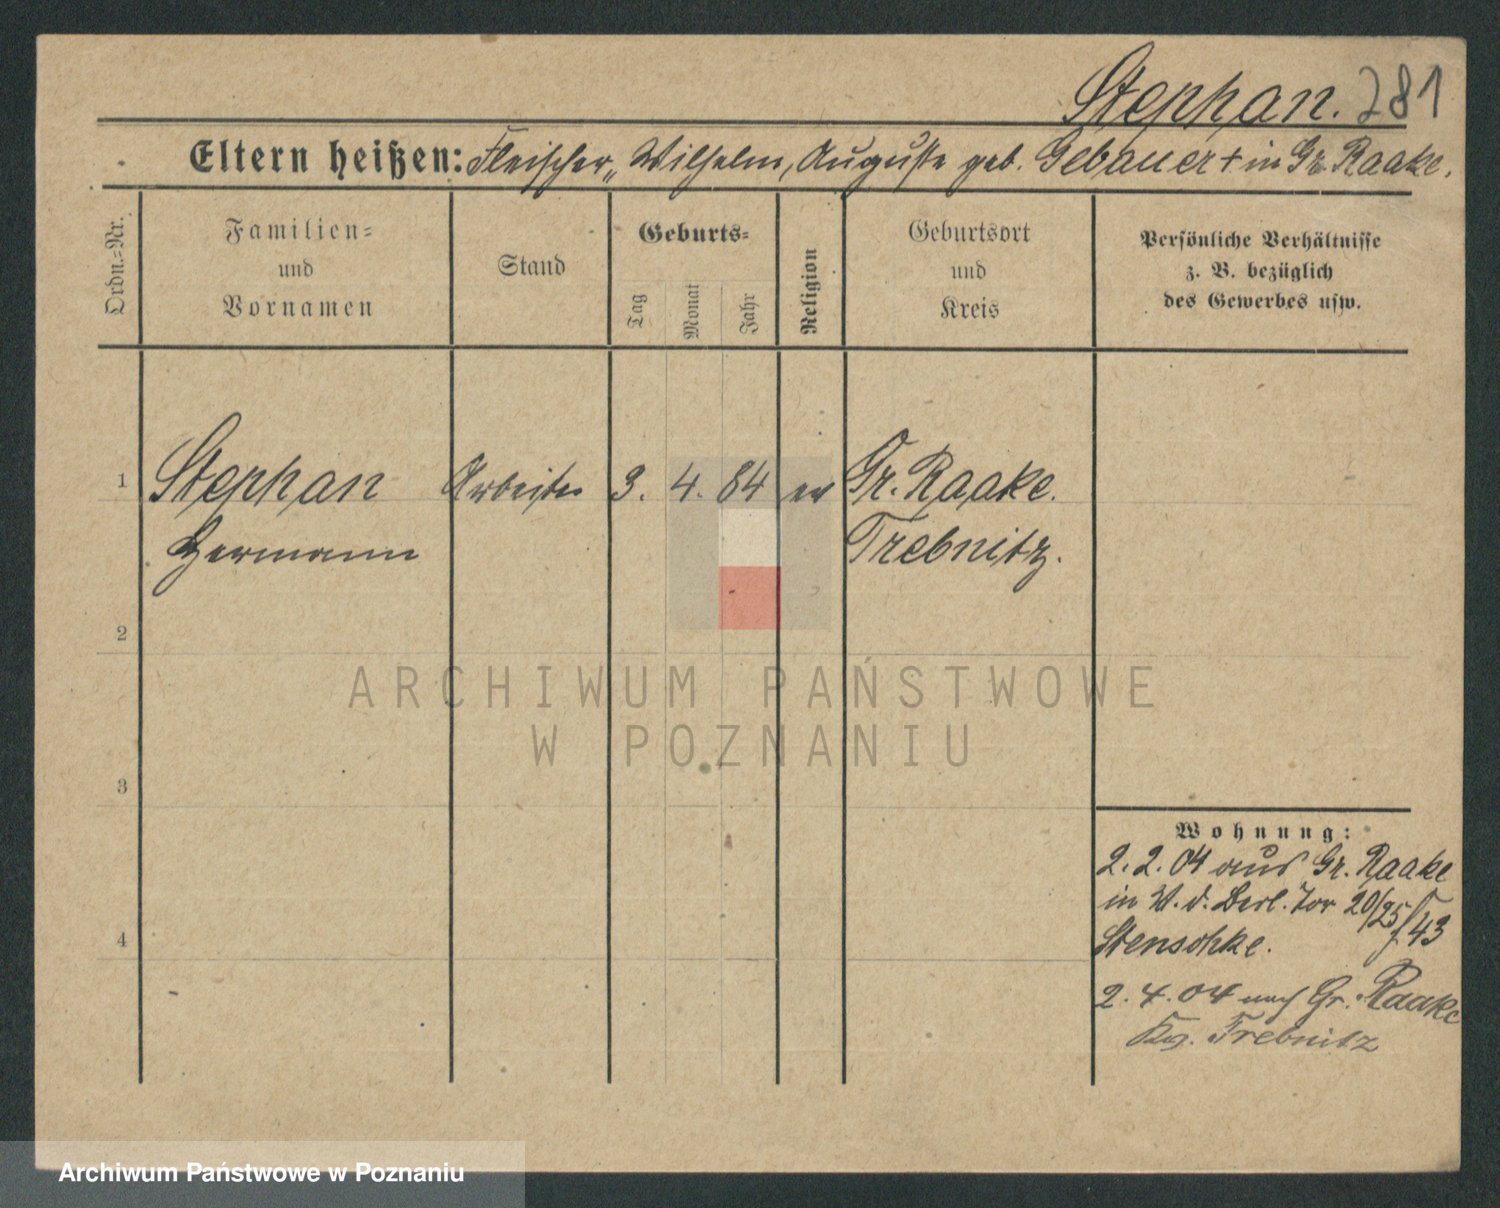 Stephan. 281
Eltern heißen: Fleischer„ Wilhelm, Auguste geb. Gebauer + in Gr. Raake.
Ordn.-Nr.
Familien-
und
Vornamen
Stand
Geburts-
Tag
Monat
Jahr
Religion
Geburtsort
und
Kreis
Persönliche Verhältnisse
z. B. bezüglich
des Gewerbes usw.
1 Stephan Arbeiter 3. 4. 84 ev Gr. Raake.
Hermann Trebnitz.
2
ARCHIWUM PAŃSTWOWE
W POZNANIU
3
Wohnung:
2. 2. 04 aus Gr. Raake
in V. d. Berl. Tor 20/25 43
4
Stenschke.
2. 4. 04 nach Gr. Raake
Trebnitz
Archiwum Państwowe w Poznaniu